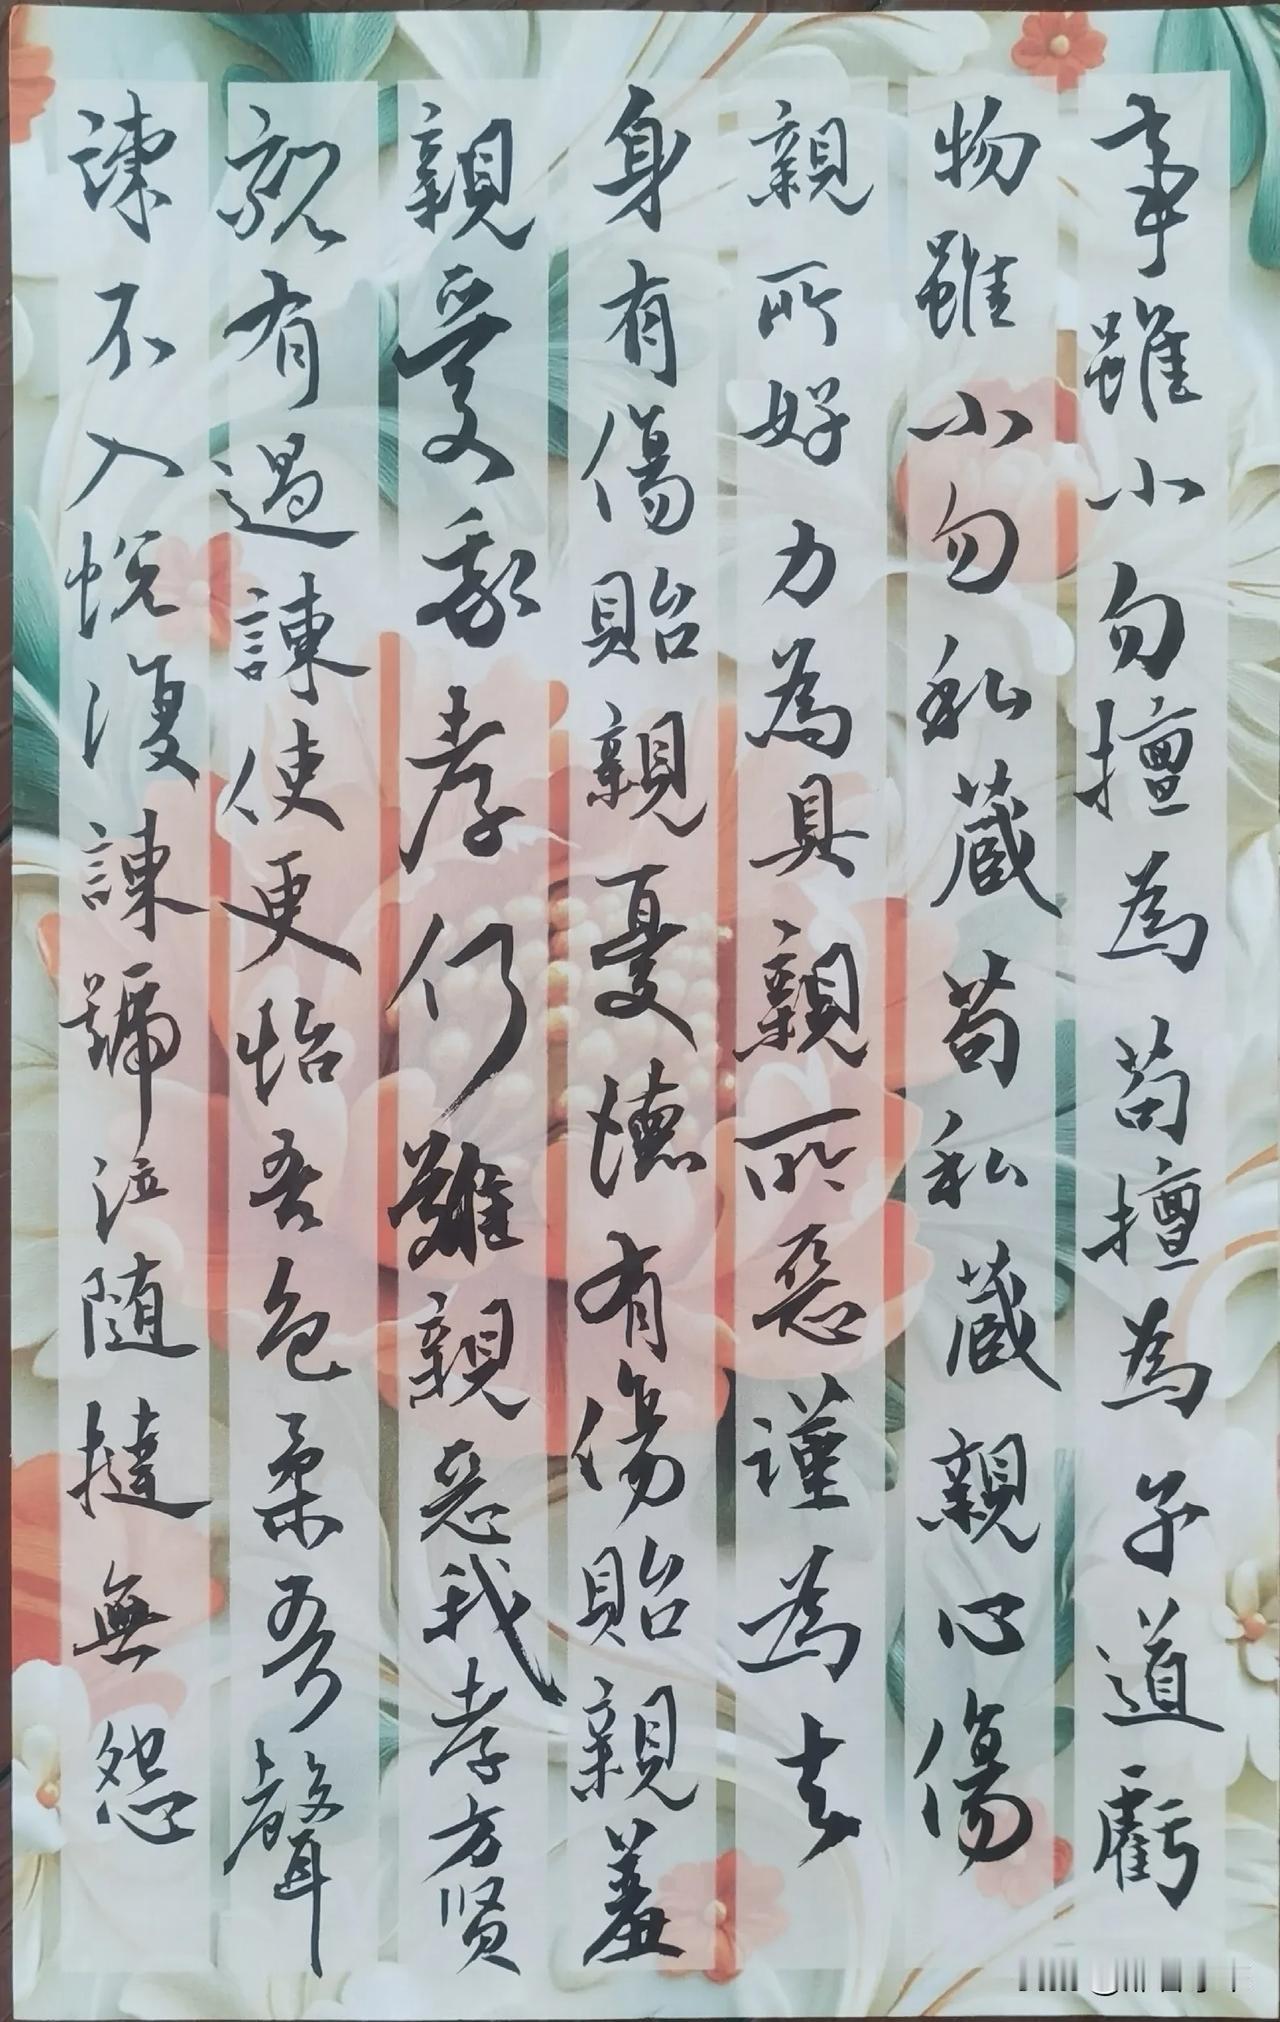 事雖小勿擅為苟擅為子道虧
物雖小勿私蔵苟私蔵親心傷
親所好力為具親所惡謹為去
身有傷貽親憂德有傷貽親羞
親愛我孝何難親惡我孝方贤
親有過諫使更怡吾色柔吾聲
諫不入悅復諫號泣随撻無怨